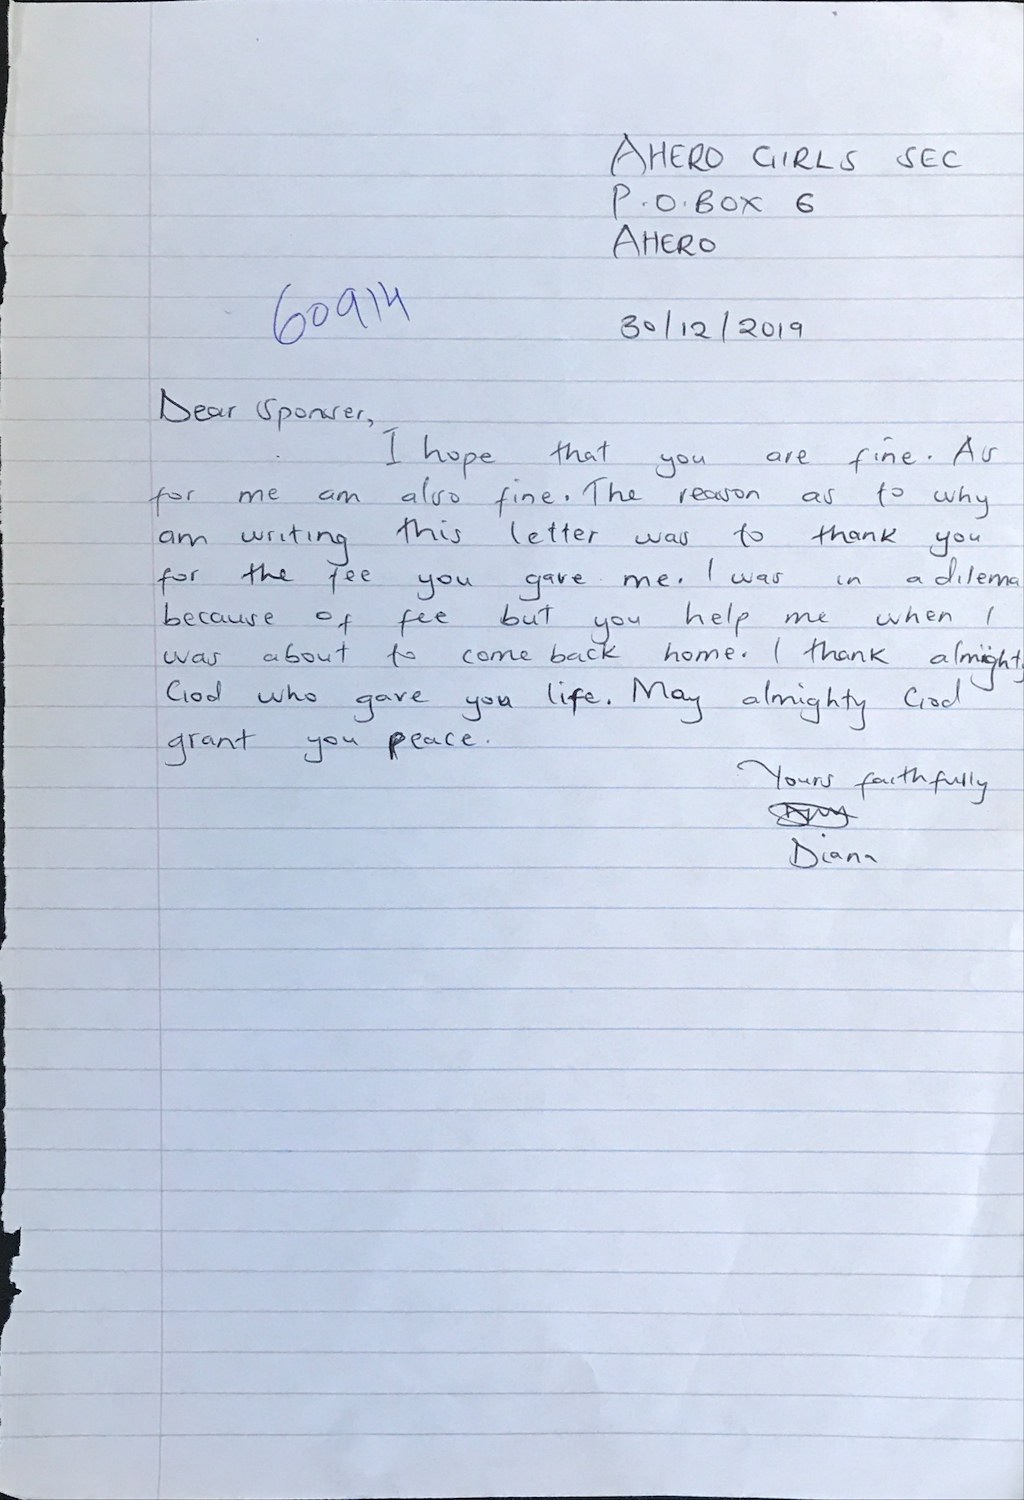 AHERO GIRLS SEC
P.O.BOX 6
AHERO
60914
30/12/2019
Dear Sponser,
I hope that you are fine. As
for me am also fine. The reason as to why
am writing this letter was to thank you
for the fee you gave me. I was in a dilema
because of fee but you help me when I
was about to come back home. I thank almighty
God who gave you life. May almighty God
grant you peace.
Yours faithfully
Diana